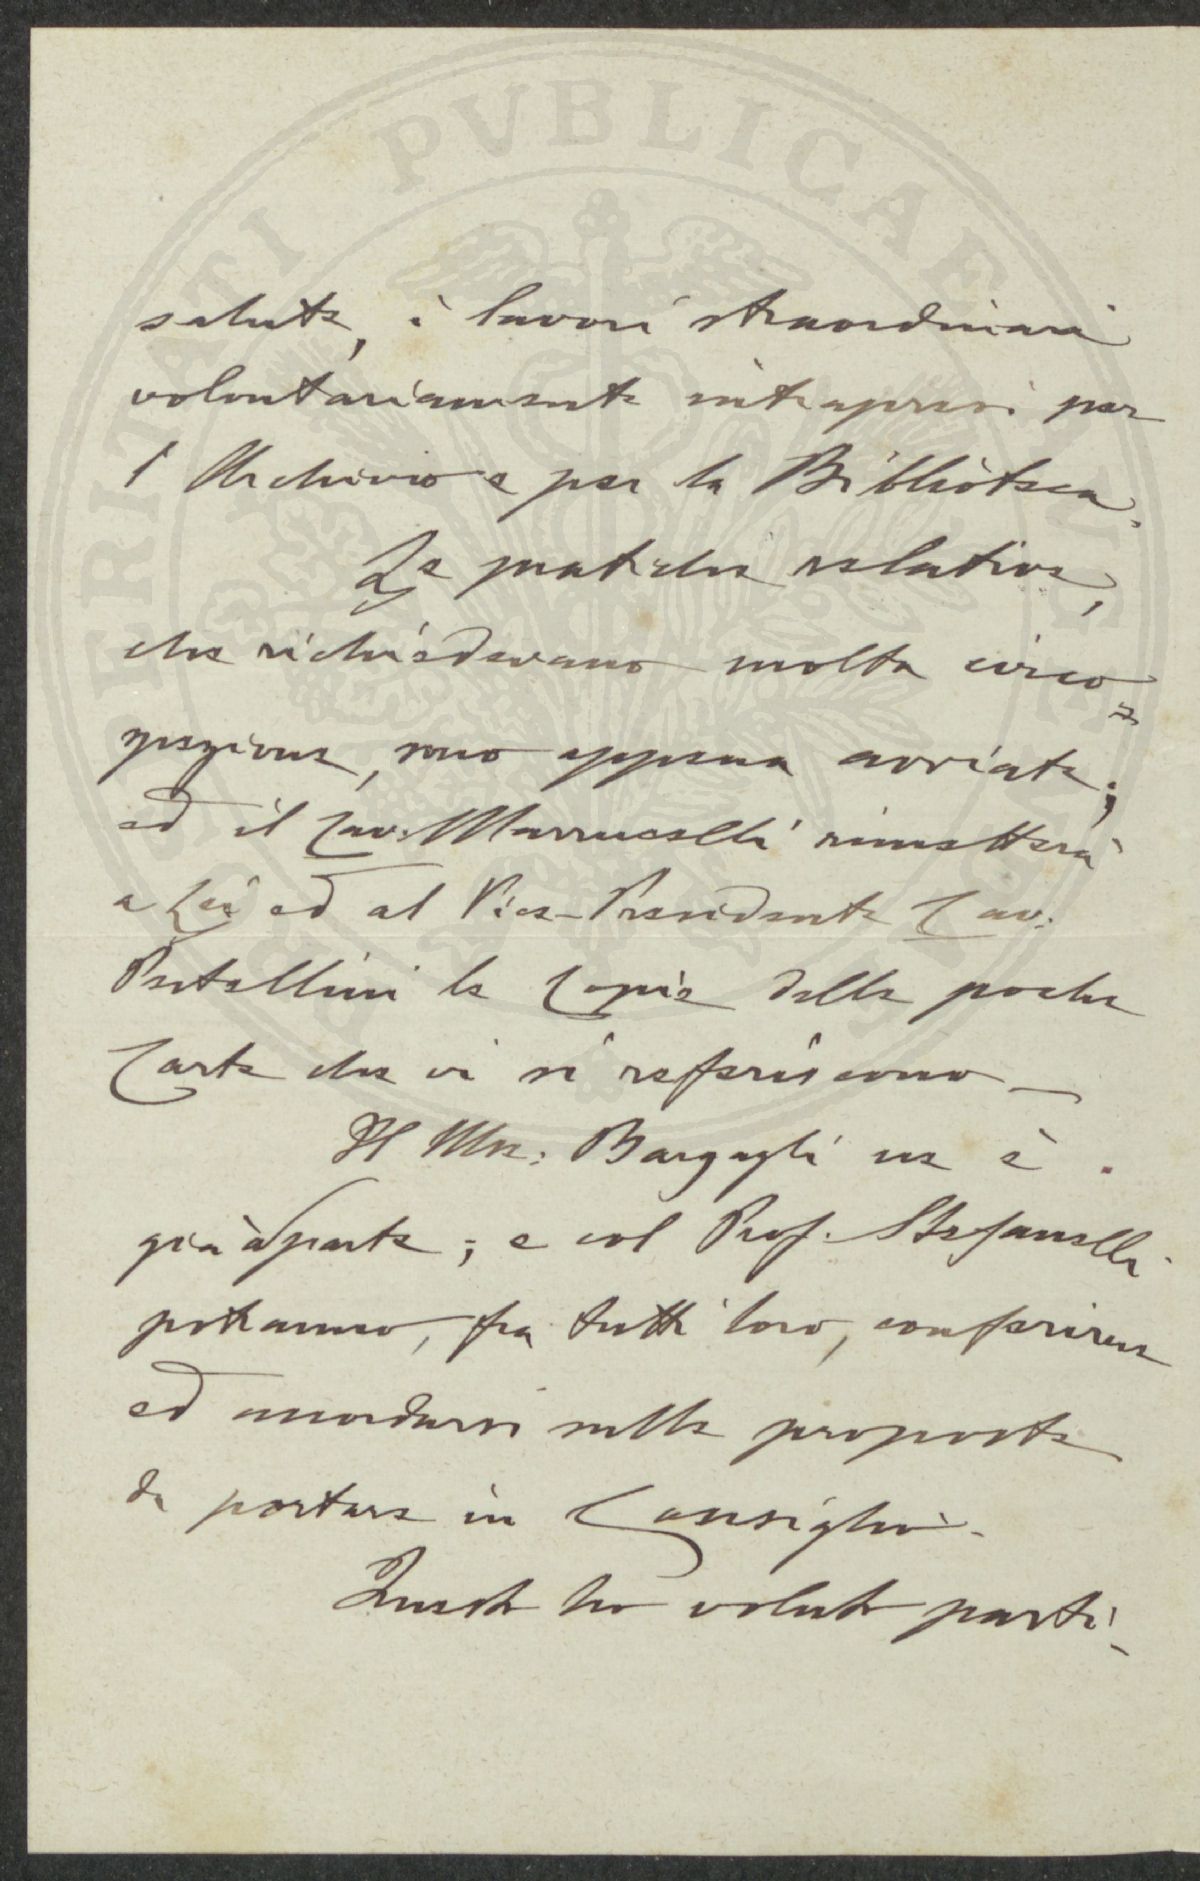 salute, i lavori straordinari
volontariamente intrapresi per
l'Archivio e per la Biblioteca.
Le pratiche relative,
che richiedevano molta circo=
spezione, sono appena avviate;
ed il Cav. Marrucelli rimetterà
a Lei ed al Vice-Presidente Cav.
Bertellini le copie delle poche
Carte che vi si riferiscono_
Il Mse: Bargagli ne è
già a parte; e col Prof. Stefanelli
potranno, fra tutti loro, conferirne
ed accordarsi sulle proposte
da portare in Consiglio.
Questo ho voluto parti-
PROSPERITATI PVBLICAE AVGENDAE